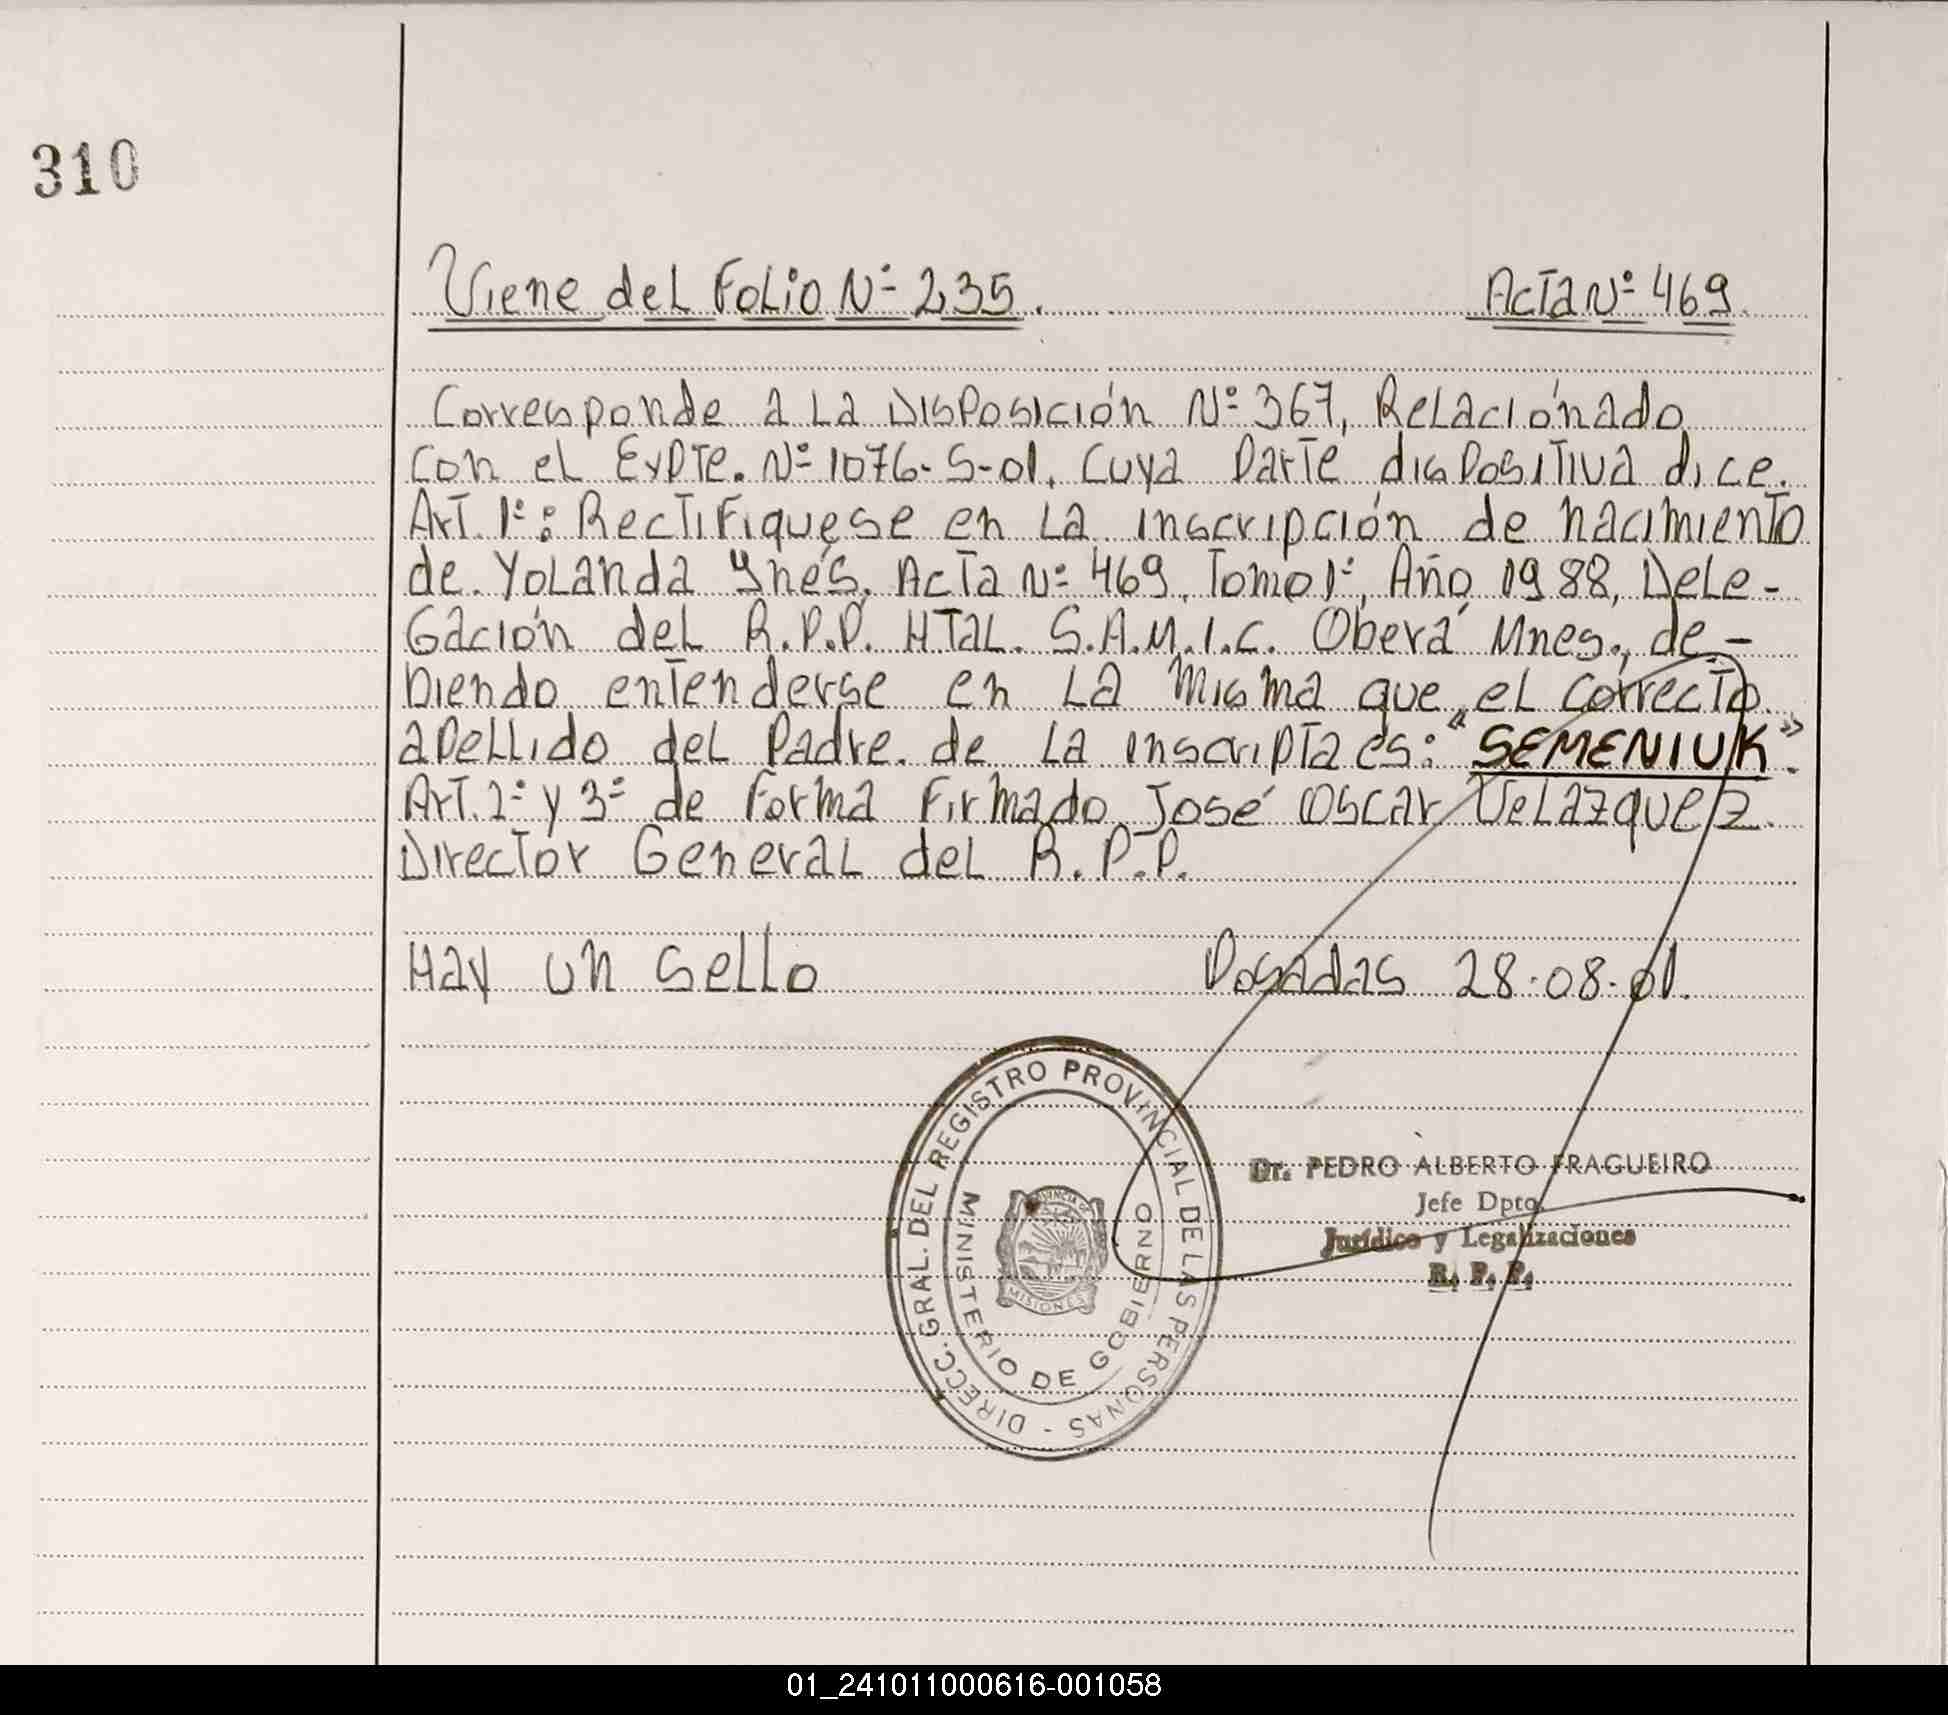 310
Viene del Folio Nº 235. Acta Nº 469
Corresponde a la Disposición Nº 367, Relaciónado
con el Expte. Nº 1076-S-01, Cuya Parte dispositiva dice.
Art. 1º: Rectifiquese en la inscripción de nacimiento
de Yolanda Ynés, Acta Nº 469, Tomo 1º, Año 1988, Dele-
gación del R.P.P. Htal. S.A.M.I.C. Oberá Mnes., de-
biendo entenderse en la misma que el correcto
apellido del Padre de la inscripta es: "SEMENIUK".
Art. 2º y 3º de forma Firmado José Oscar Velazquez
Director General del R.P.P.
Hay un sello Posadas 28-08-01.
DIRECC. GRAL. DEL REGISTRO PROVINCIAL DE LAS PERSONAS -
MINISTERIO DE GOBIERNO
PROVINCIA DE
MISIONES
Dr. PEDRO ALBERTO FRAGUEIRO
Jefe Dpto.
Jurídico y Legalizaciones
R. P. P.
01_241011000616-001058